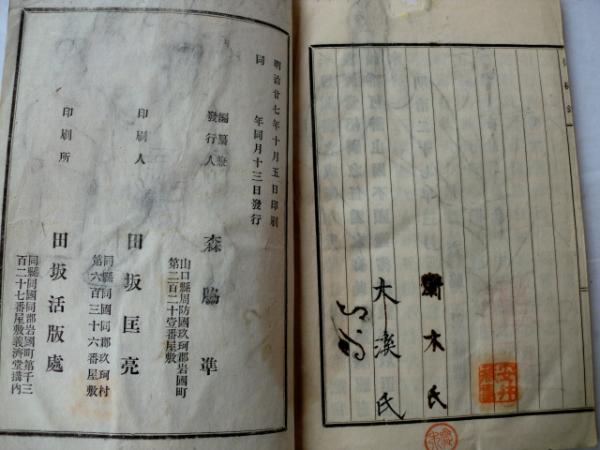 齋木氏
大溪氏
明治廿七年十月五日印刷
同年同月十三日發行
編纂兼
發行人
森脇準
山口縣周防國玖珂郡岩國町
第二百二十壹番屋敷
印刷人
田坂匡亮
同縣同國同郡玖珂村
第六百三十六番屋敷
印刷所
田坂活版處
同縣同國同郡岩國町第千三
百二十七番屋敷義濟堂搆内